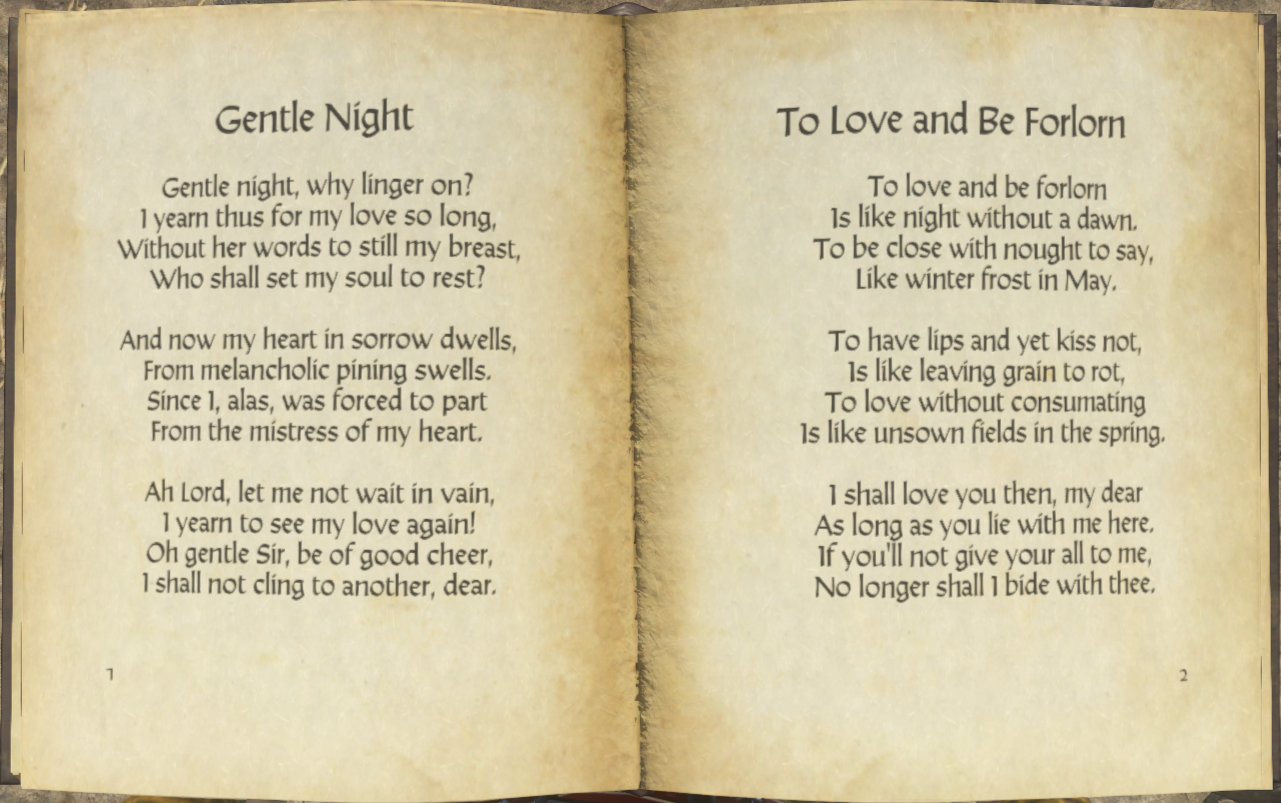 Gentle Night
Gentle night, why linger on?
I yearn thus for my love so long,
Without her words to still my breast,
Who shall set my soul to rest?
And now my heart in sorrow dwells,
From melancholic pining swells.
Since I, alas, was forced to part
From the mistress of my heart.
Ah Lord, let me not wait in vain,
I yearn to see my love again!
Oh gentle Sir, be of good cheer,
I shall not cling to another, dear.
1
To Love and Be Forlorn
To love and be forlorn
Is like night without a dawn.
To be close with nought to say,
Like winter frost in May.
To have lips and yet kiss not,
Is like leaving grain to rot,
To love without consumating
Is like unsown fields in the spring.
I shall love you then, my dear
As long as you lie with me here.
If you'll not give your all to me,
No longer shall I bide with thee.
2